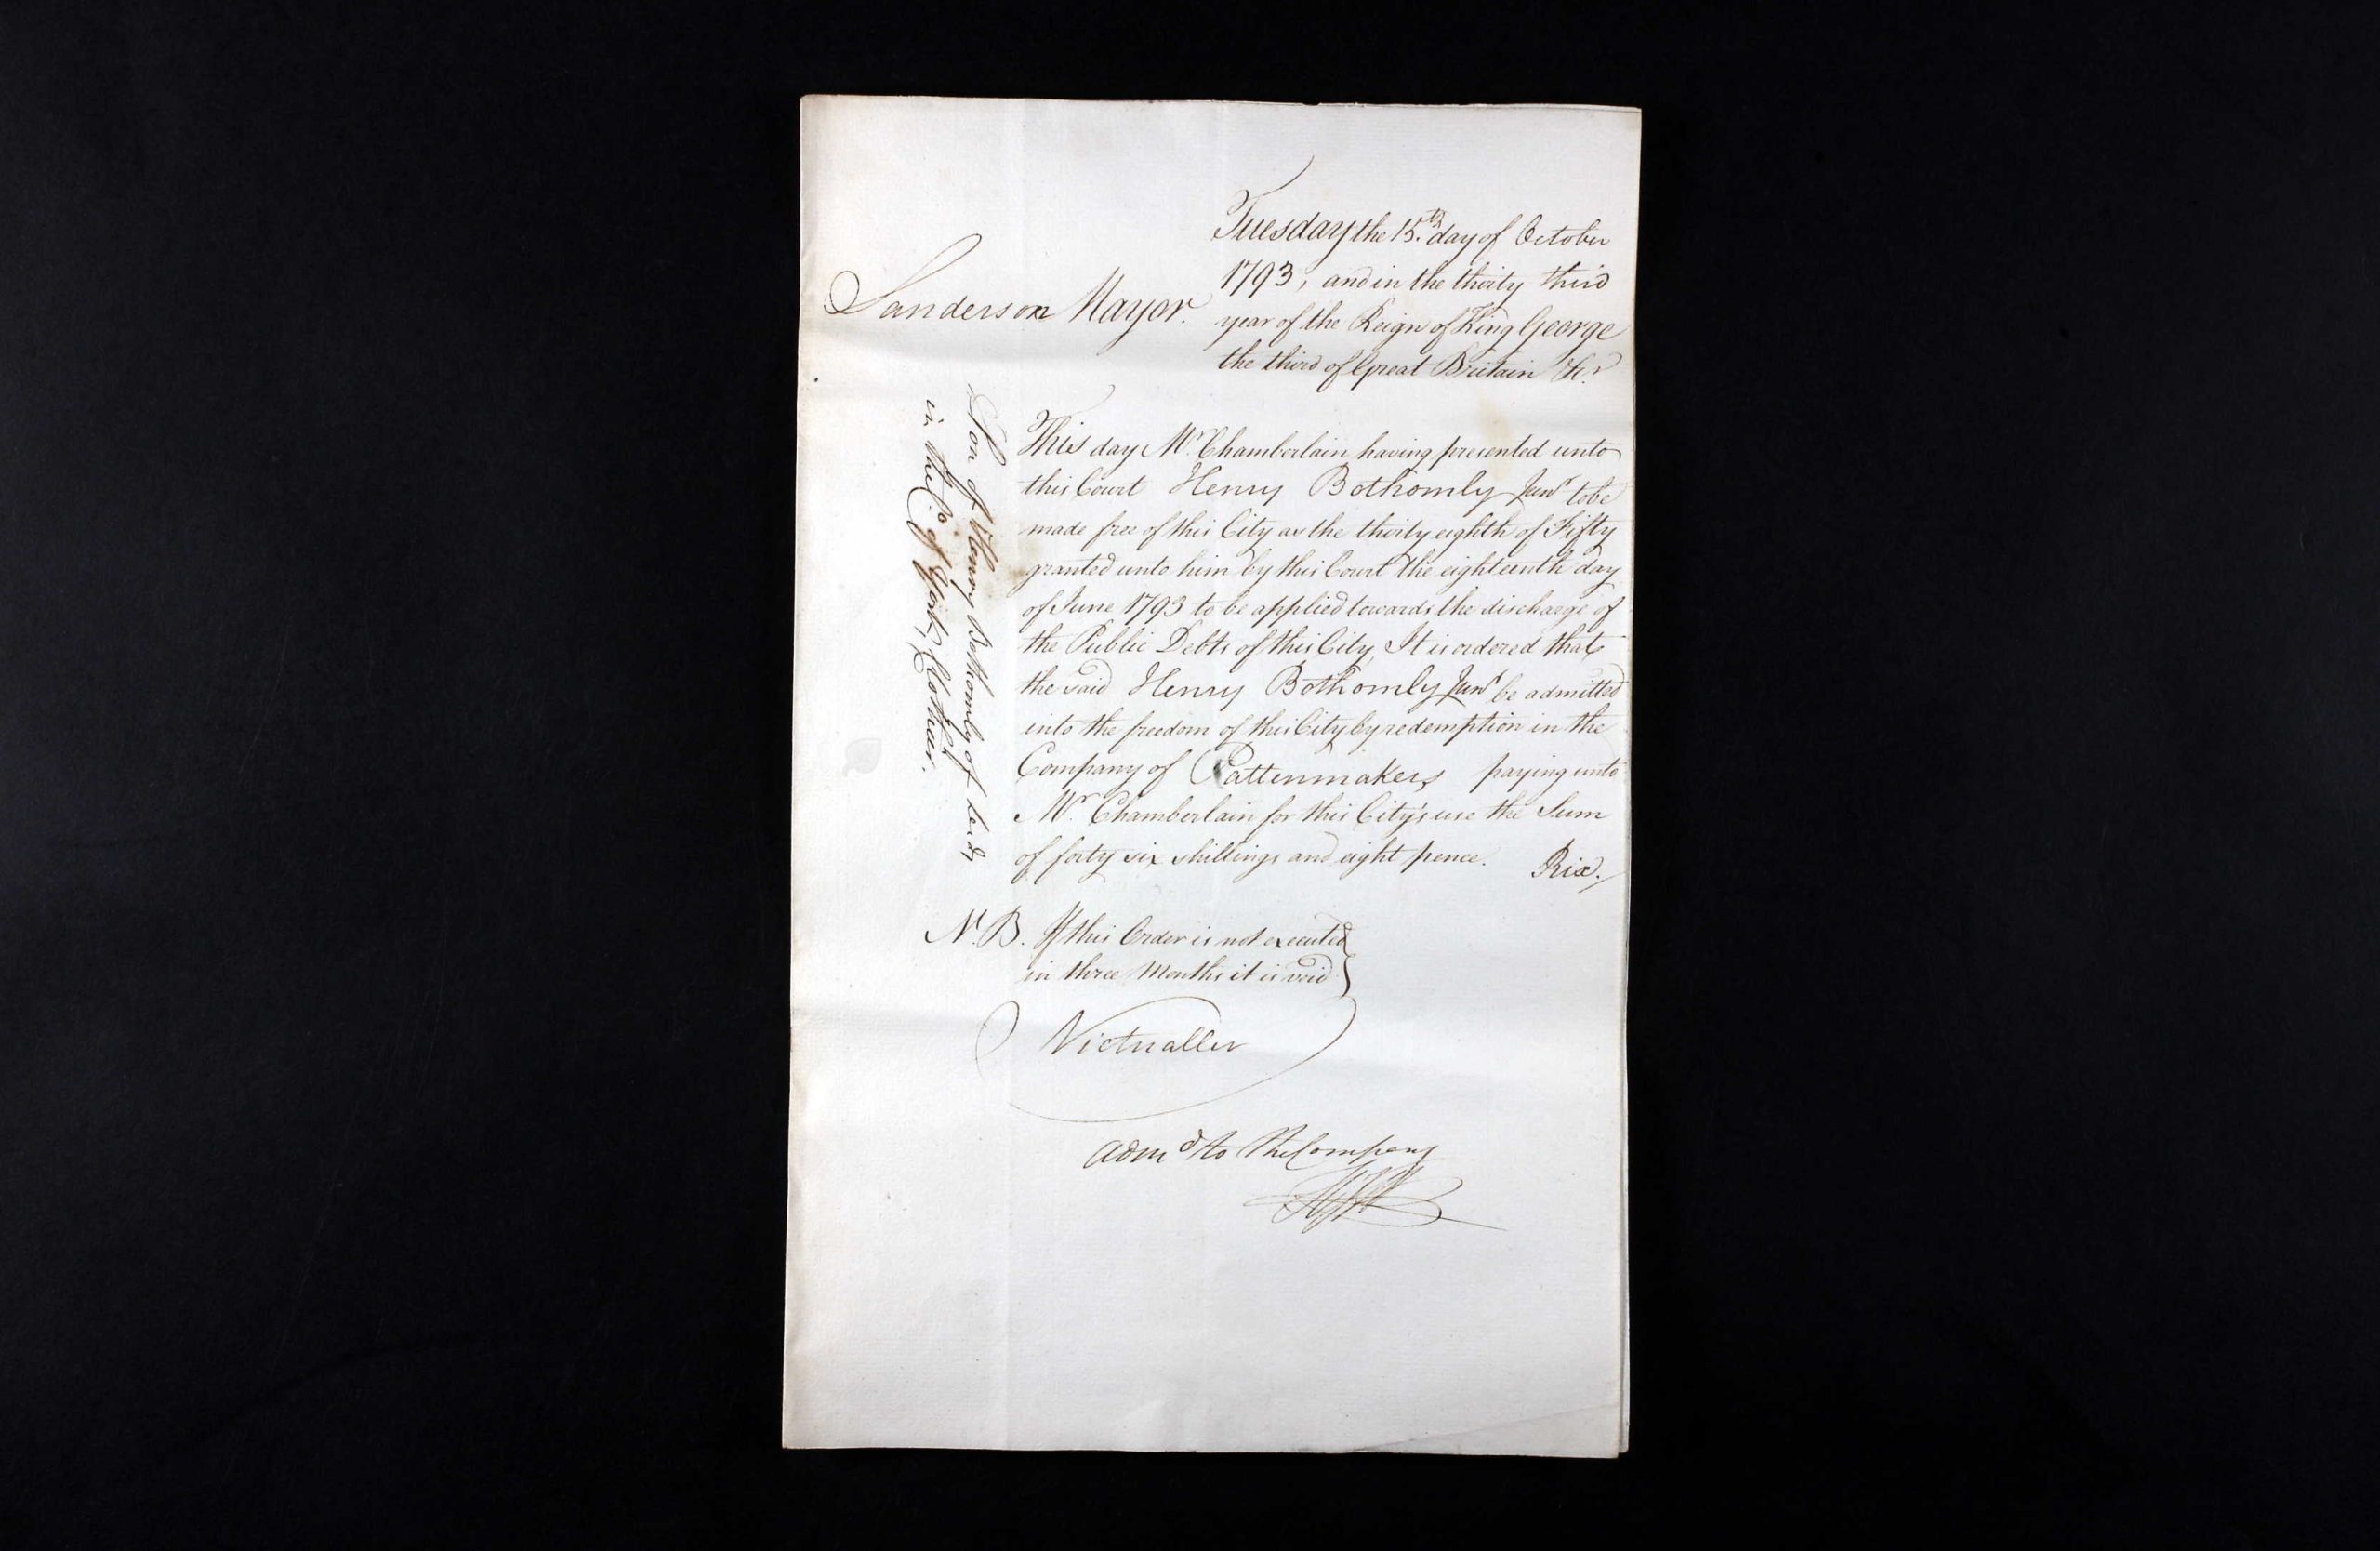 Tuesday the 15.th day of October
1793, and in the thirty third
Sanderson Mayor.
year of the Reign of King George
the third of Great Britain &c.
This day Mr. Chamberlain having presented unto
this Court Henry Bothomly Junr to be
made free of this City as the thirty eighth of Fifty
granted unto him by this Court the eighteenth day
of June 1793 to be applied towards the discharge of
the Public Debts of this City, It is ordered that
the said Henry Bothomly Junr be admitted
into the freedom of this City by redemption in the
Company of Pattenmakers paying unto
Mr. Chamberlain for this City's use the Sum
of forty six shillings and eight pence. Rix.
N.B. If this Order is not executed
in three Months it is void
Victualler
Admd to the Company
Son of Henry Bothomly of Leeds
in the Co. of York, Clothier.